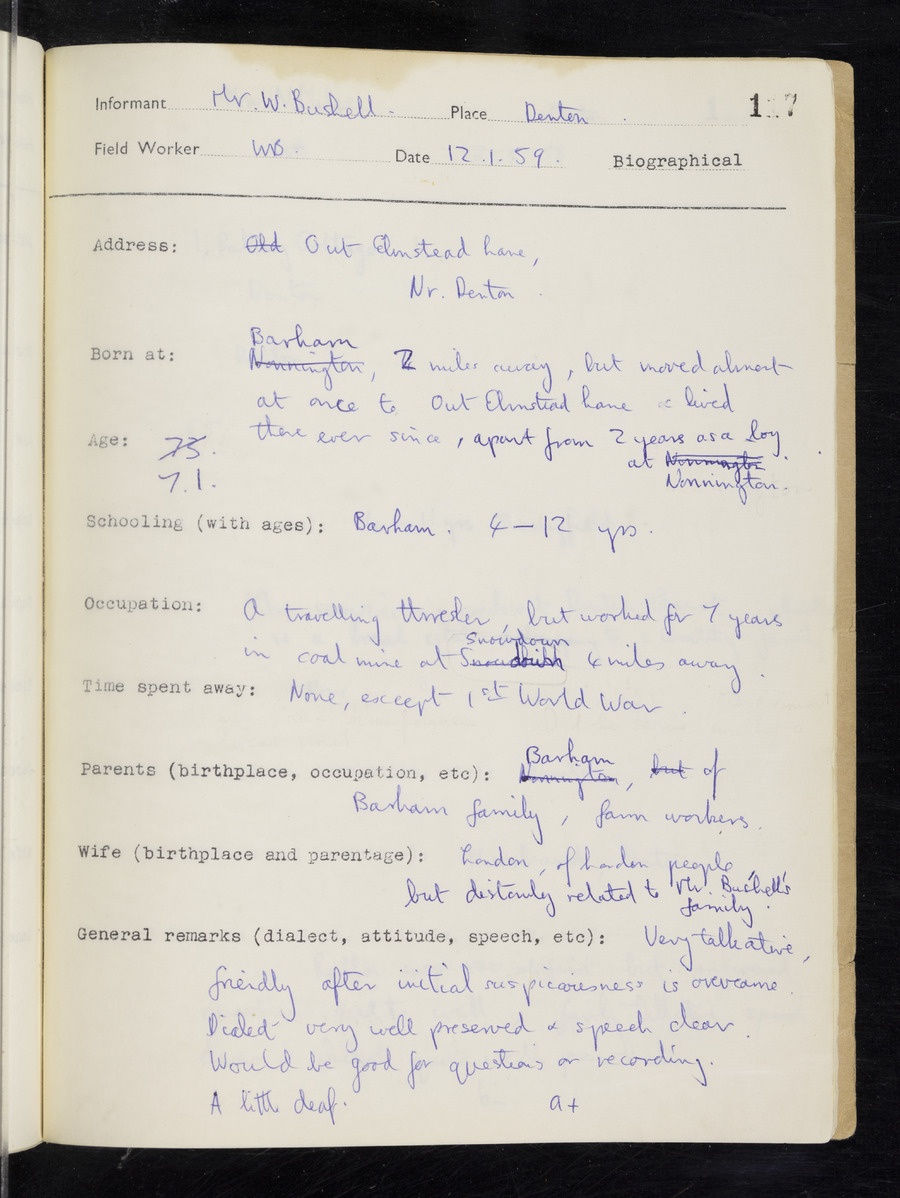 Informant Mr. W. Bushell. Place Denton. 1 7
Field Worker WB. Date 12.1.59. Biographical
Address: Old Out Elmstead Lane,
Nr. Denton.
Barham
Born at: Nonnington, 2 miles away, but moved almost
at once to Out Elmstead Lane & lived
there ever since, apart from 2 years as a boy
Age: 75. at Nonnington.
71. Nonnington.
Schooling (with ages): Barham. 4-12 yrs.
Occupation: A travelling thresher, but worked for 7 years
Snowdown
in coal mine at 4 miles away.
Time spent away: None, except 1st World War.
Barham
Parents (birthplace, occupation, etc): Nonnington, but of
Barham family, farm workers.
Wife (birthplace and parentage): London, of London people,
but distantly related to Mr. Bushell's
family.
General remarks (dialect, attitude, speech, etc): Very talkative,
friendly after initial suspiciousness is overcome.
Dialect very well preserved & speech clear.
Would be good for questions or recording.
A little deaf. a+